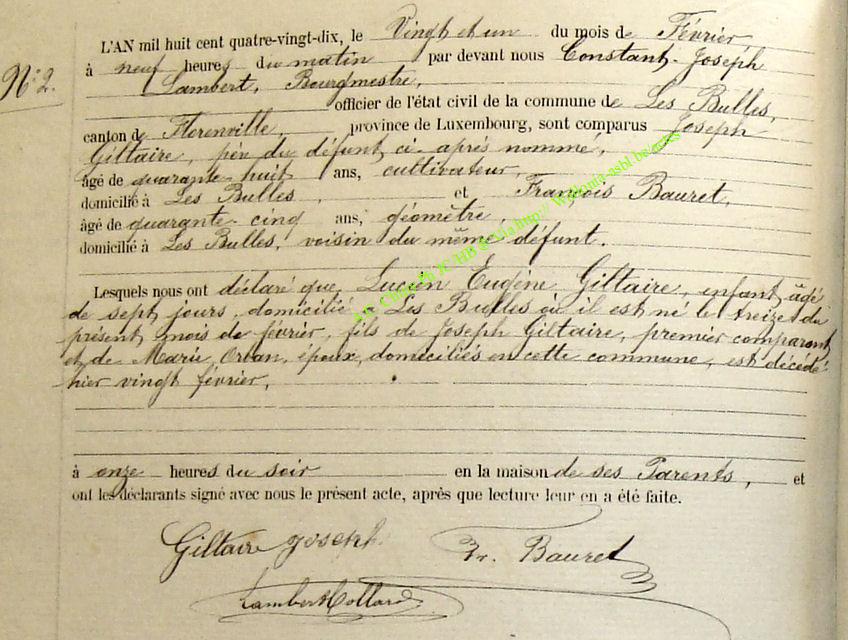 L'AN mil huit cent quatre-vingt-dix, le Vingt et un du mois de Février,
à neuf heures du matin par devant nous Constant-Joseph
N° 2.
Lambert, Bourgmestre,
officier de l'état civil de la commune de Les Bulles,
canton de Florenville, province de Luxembourg, sont comparus Joseph
Giltaire, père du défunt ci-après nommé,
âgé de quarante-huit ans, cultivateur,
domicilié à Les Bulles, et François Bauret,
âgé de quarante-cinq ans, géomètre,
domicilié à Les Bulles, voisin du même défunt.
Lesquels nous ont déclaré que Lucien Eugène Giltaire, enfant âgé
de sept jours, domicilié Les Bulles où il est né le treize du
présent mois de février, fils de Joseph Giltaire, premier comparant
et de Marie Orban, époux, domiciliés en cette commune, est décédé
hier vingt février,
à onze heures du soir en la maison de ses Parents, et
ont les déclarants signé avec nous le présent acte, après que lecture leur en a été faite.
Giltaire Joseph Fr. Bauret
Lambert Collard